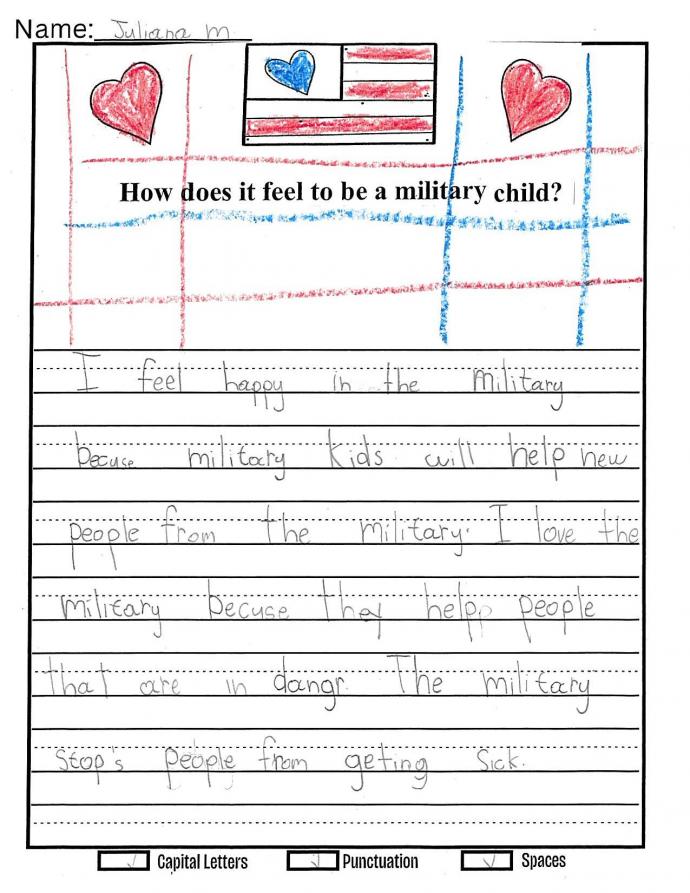 Name: Juliana M
How does it feel to be a military child?
I feel happy in the military
becuse military kids will help new
people from the military. I love the
military becuse they help people
that are in dangr. The military
Stop's people from geting sick.
Capital Letters Punctuation Spaces